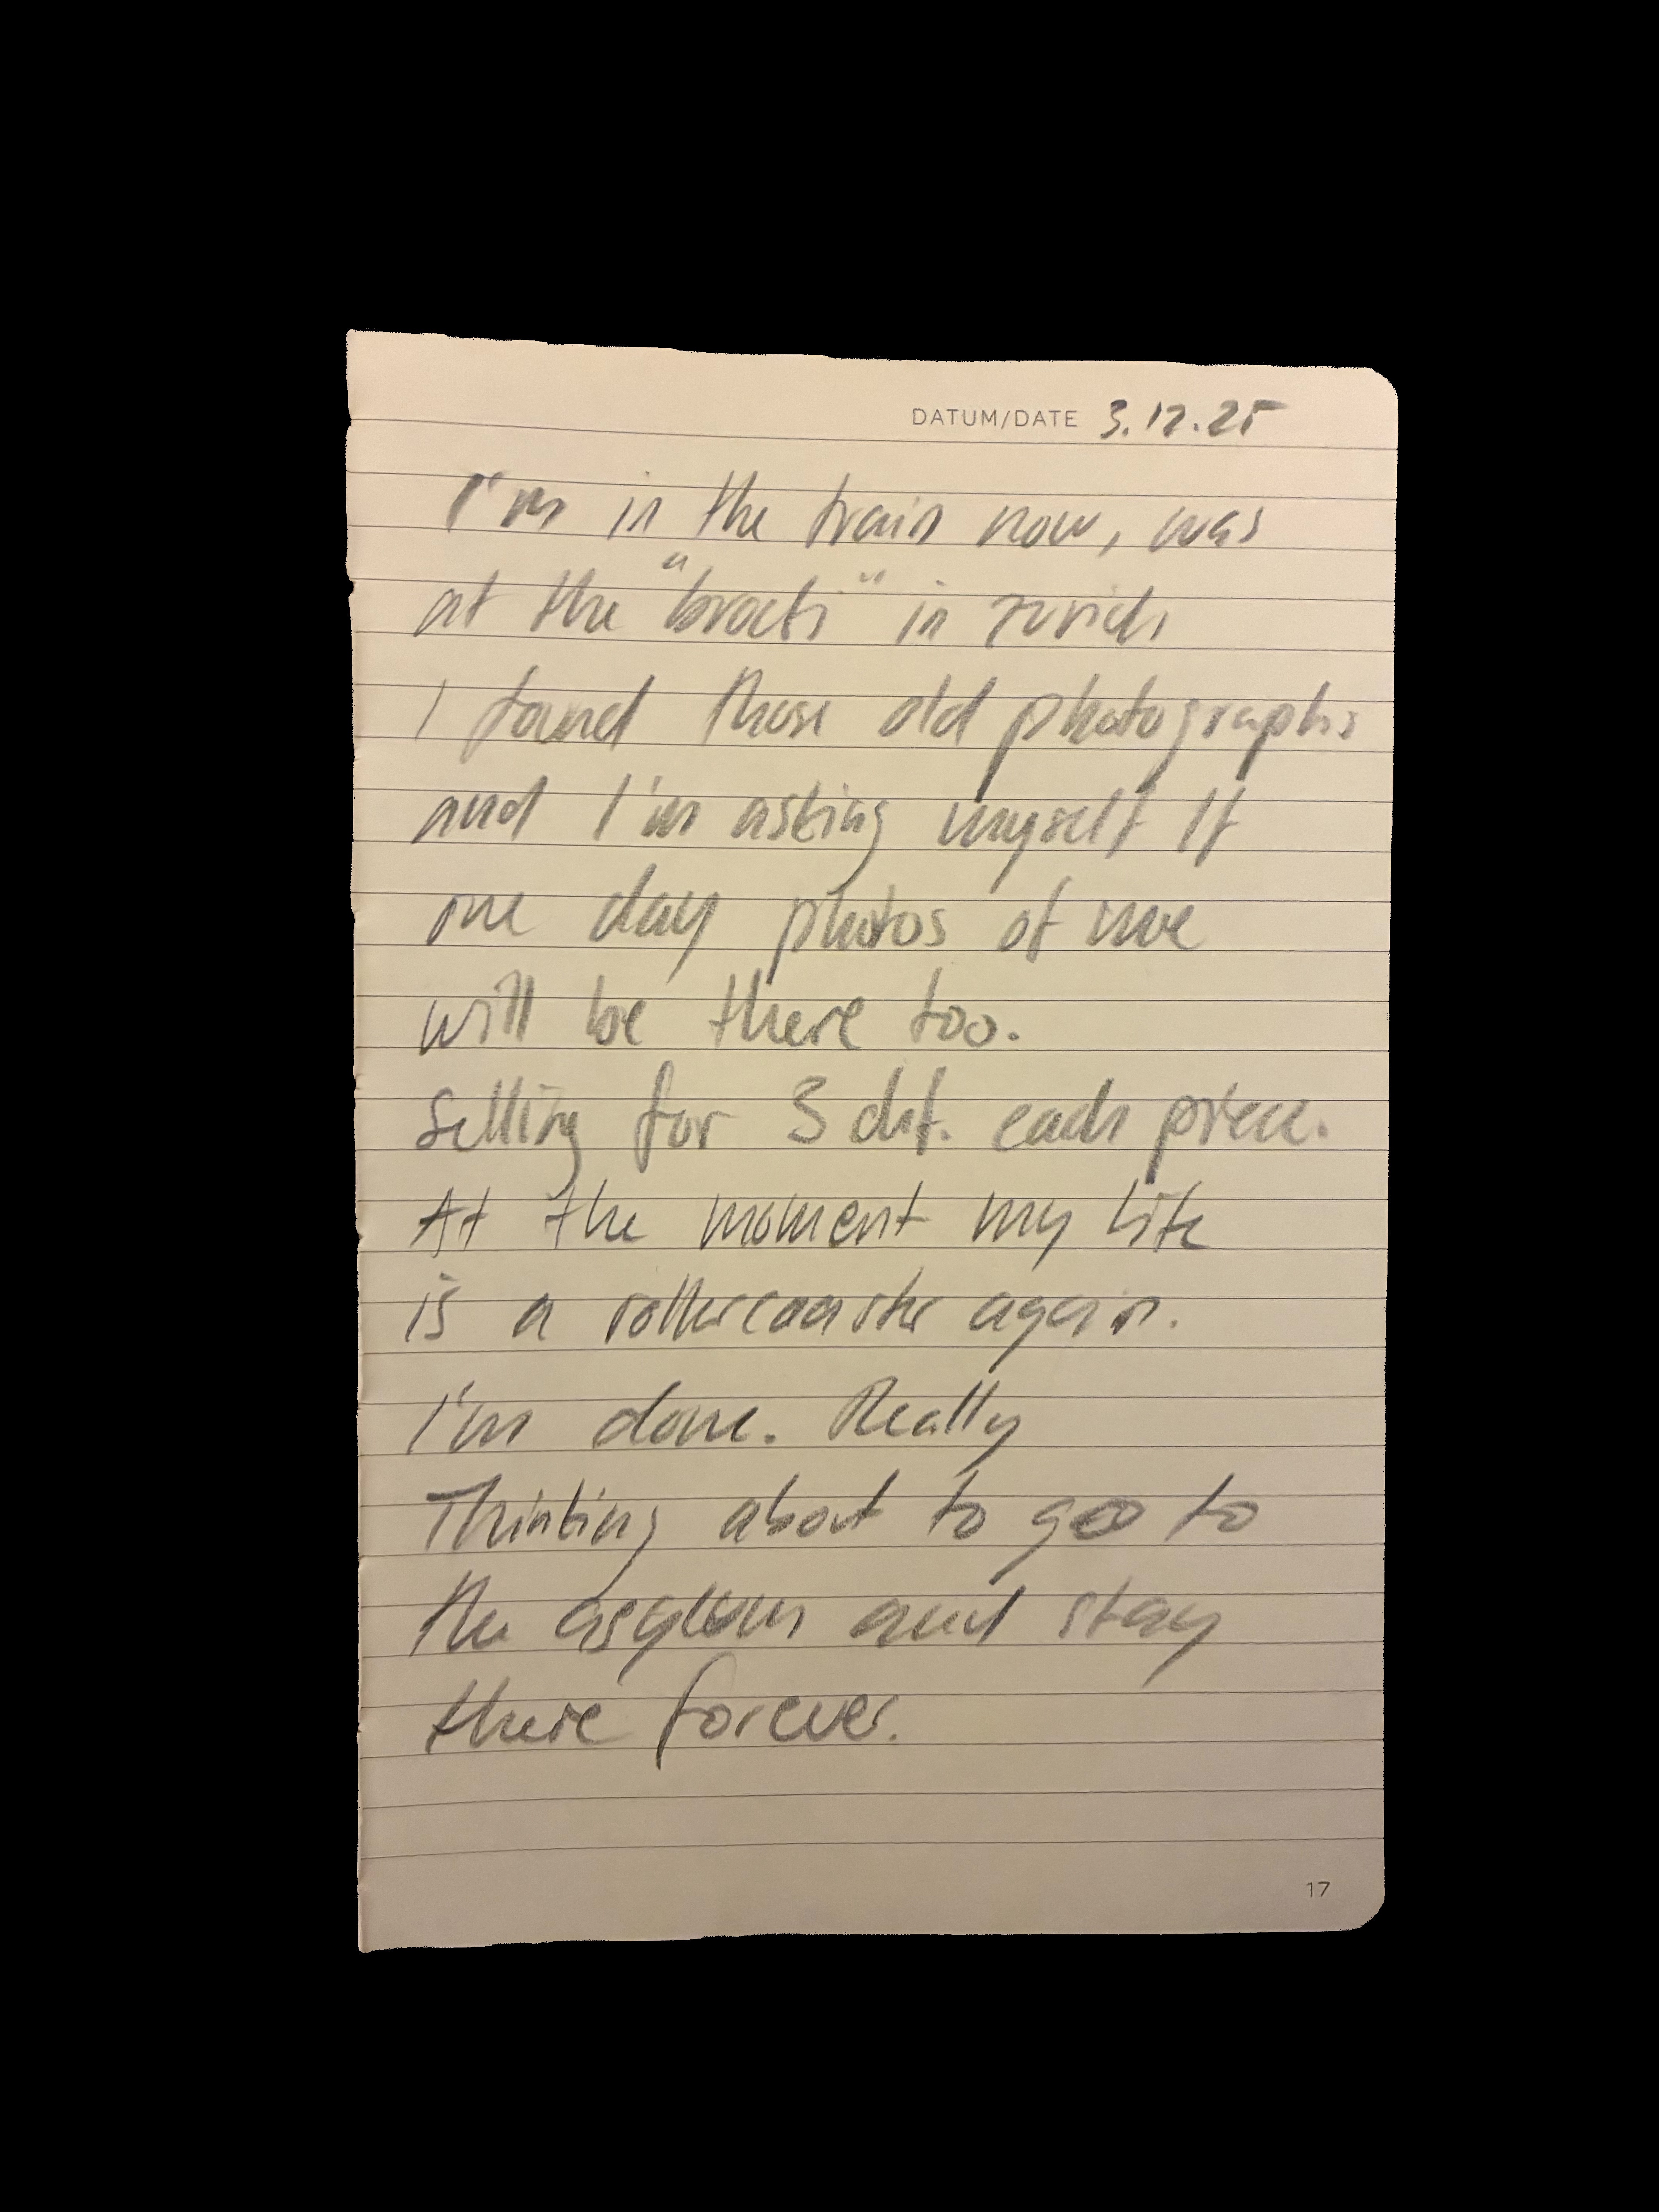 DATUM/DATE 3.12.25
I'm in the train now, was
at the "brocki" in zurich
I found those old photographs
and I'm asking myself If
one day photos of me
will be there too.
Selling for 3 chf. each piece.
At the moment my life
is a rollercoaster again.
I'm done. Really
Thinking about to go to
the asylum and stay
there forever.
17